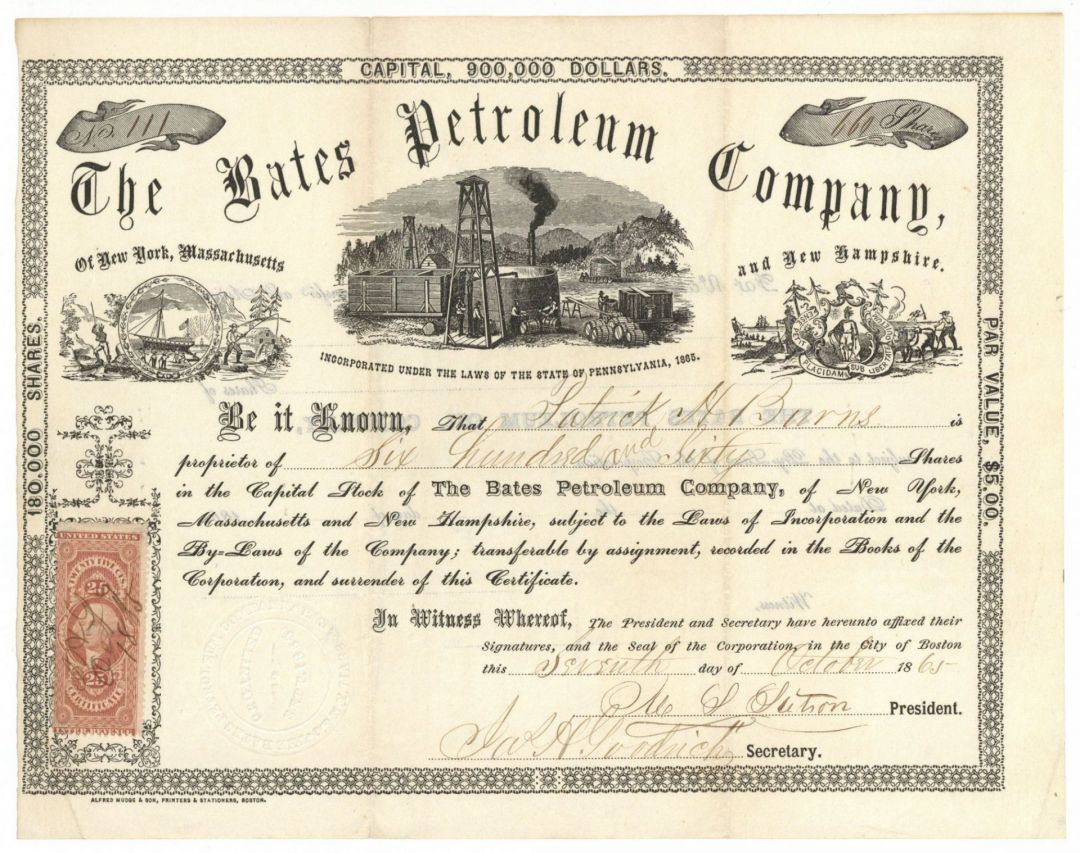 CAPITAL, 900,000 DOLLARS.
No. 111
660 Shares
The Bates Petroleum Company,
Of New York, Massachusetts
and New Hampshire.
PLACIDAM SUB LIBER
INCORPORATED UNDER THE LAWS OF THE STATE OF PENNSYLVANIA, 1865.
180.000 SHARES.
PAR VALUE, $5.00.
Be it Known, That Patrick H. Burns is
proprietor of Six hundred and Sixty Shares
in the Capital Stock of The Bates Petroleum Company, of New York,
Massachusetts and New Hampshire, subject to the Laws of Incorporation and the
By=Laws of the Company; transferable by assignment, recorded in the Books of the
Corporation, and surrender of this Certificate.
UNITED STATES
TWENTY FIVE CTS.
25
25
CERTIFICATE
INTER. REVENUE
In Witness Whereof, The President and Secretary have hereunto affixed their
Signatures, and the Seal of the Corporation, in the City of Boston
this Seventh day of October 1865
President.
Jas. H. Goodrich Secretary.
ALFRED MUDGE & SON, PRINTERS & STATIONERS, BOSTON.